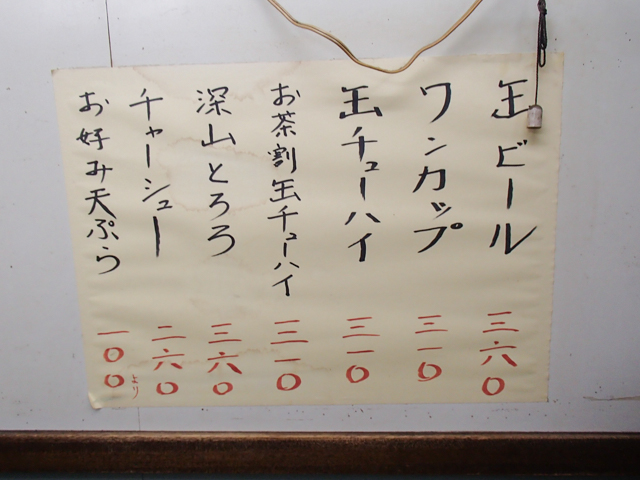 缶ビール 三六〇
ワンカップ 三一〇
缶チューハイ 三一〇
お茶割缶チューハイ 三一〇
深山とろろ 三六〇
チャーシュー 二六〇
お好み天ぷら 一〇〇より